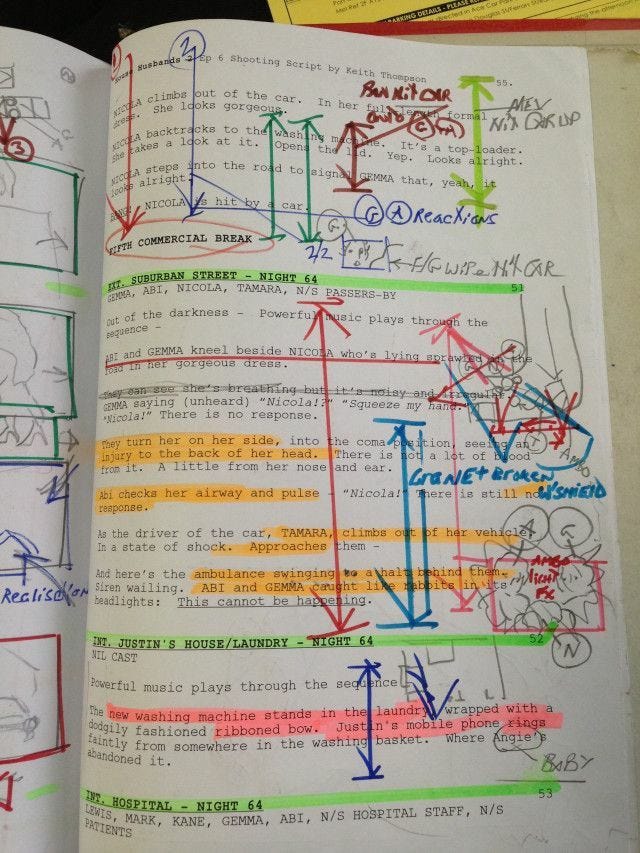 PARKING DETAILS - PLEASE
House Husbands 2 Ep 6 Shooting Script by Keith Thompson
55.
NICOLA climbs out of the car. In her full length formal
dress. She looks gorgeous.
NICOLA backtracks to the washing machine. It's a top-loader.
She takes a look at it. Opens the lid. Yep. Looks alright.
NICOLA steps into the road to signal GEMMA that, yeah, it
looks alright.
NICOLA is hit by a car.
FIFTH COMMERCIAL BREAK
REACTIONS
2/2
F/G WIPE NIX CAR
EXT. SUBURBAN STREET - NIGHT 64
51
GEMMA, ABI, NICOLA, TAMARA, N/S PASSERS-BY
Out of the darkness - Powerful music plays through the
sequence -
ABI and GEMMA kneel beside NICOLA who's lying sprawled in the
road in her gorgeous dress.
They can see she's breathing but it's noisy and irregular.
GEMMA saying (unheard) "Nicola!?" "Squeeze my hand."
"Nicola!" There is no response.
They turn her on her side, into the coma position, seeing an
injury to the back of her head. There is not a lot of blood
from it. A little from her nose and ear.
AMBO
BONNET + BROKEN
W/SHIELD
Abi checks her airway and pulse - "Nicola!" There is still no
response.
As the driver of the car, TAMARA, climbs out of her vehicle.
In a state of shock. Approaches them -
And here's the ambulance swinging to a halt behind them.
Siren wailing. ABI and GEMMA caught like rabbits in its
headlights: This cannot be happening.
A
G
AMBO
light
FX
N
INT. JUSTIN'S HOUSE/LAUNDRY - NIGHT 64
52
NIL CAST
Powerful music plays through the sequence
The new washing machine stands in the laundry, wrapped with a
dodgily fashioned ribboned bow. Justin's mobile phone rings
faintly from somewhere in the washing basket. Where Angie's
abandoned it.
BABY
INT. HOSPITAL - NIGHT 64
53
LEWIS, MARK, KANE, GEMMA, ABI, N/S HOSPITAL STAFF, N/S
PATIENTS